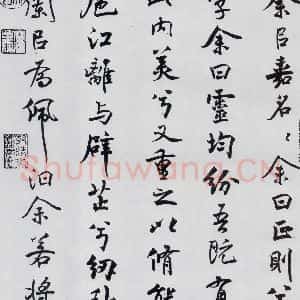 余㠯嘉名〻余曰正則兮
字余曰靈均紛吾既有
此内美兮又重之以脩能
扈江離与辟芷兮紉秋
蘭㠯為佩汩余若將
Shufawang.CN